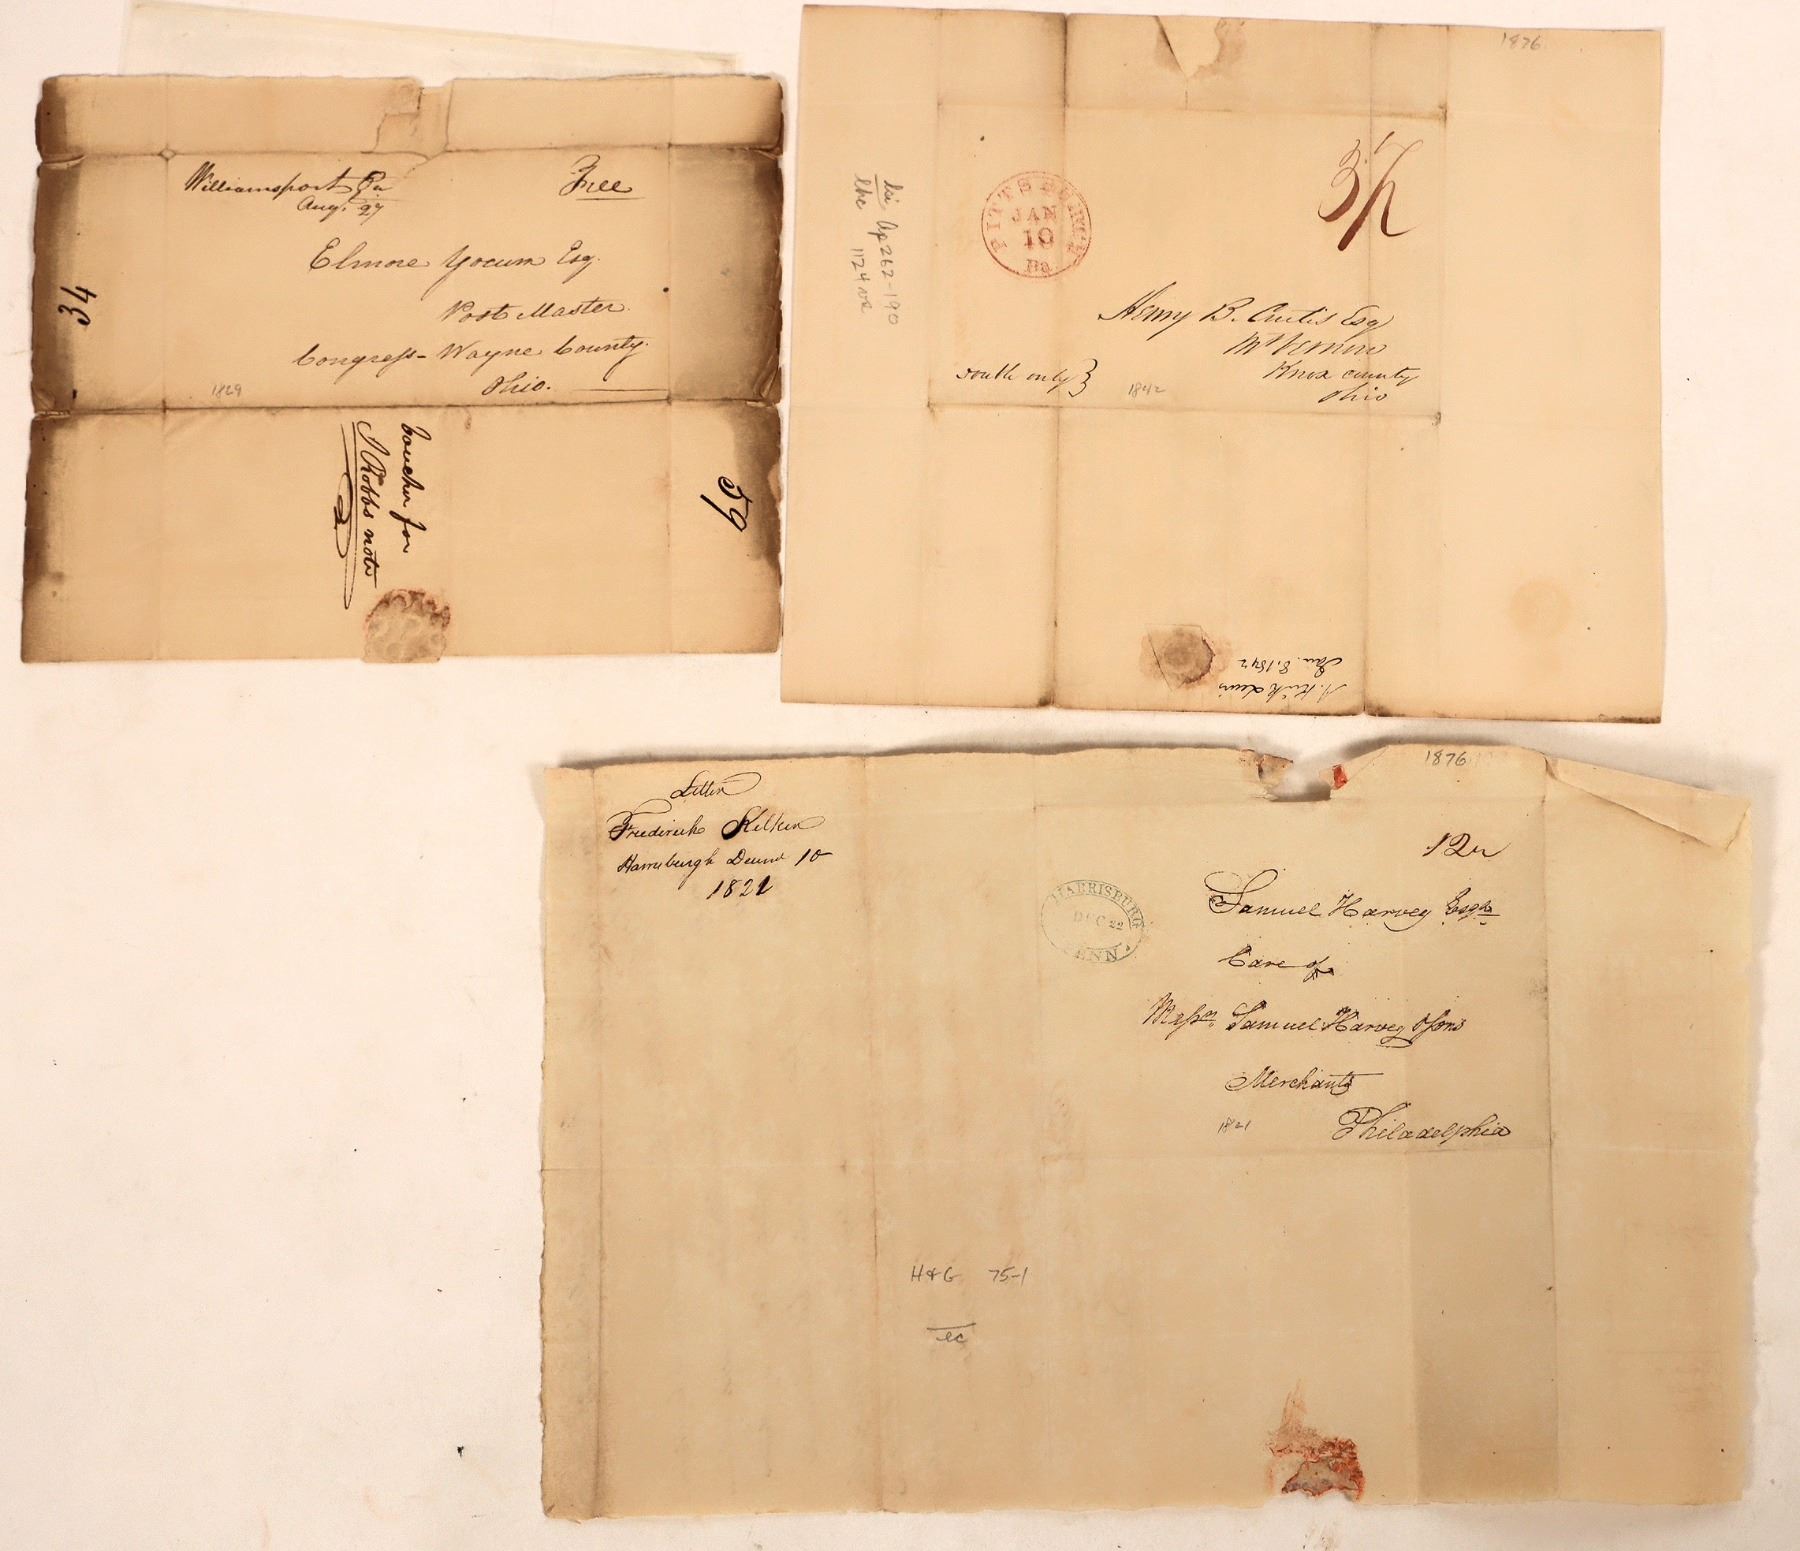 Williamsport Pa
Aug. 27
Free
Elmore Yocum Esq.
Post Master
Congress - Wayne County.
Ohio.
1829
34
59
Voucher for
J Robbs note
1876
PITTSBURGH
JAN
10
Pa
Henry B. Curtis Esq
Mt Vernon
Knox county
Ohio
South only
1842
Ap262-190
1124
Jan. 8. 1842
Letter
Frederick Kelker
Harrisburgh Decemr 10
1821
1876
HARRISBURG
DEC 22
PENN
Samuel Harvey Esqr
Care of
Messrs Samuel Harvey & Sons
Merchants
Philadelphia
1821
H&G 75-1
ec